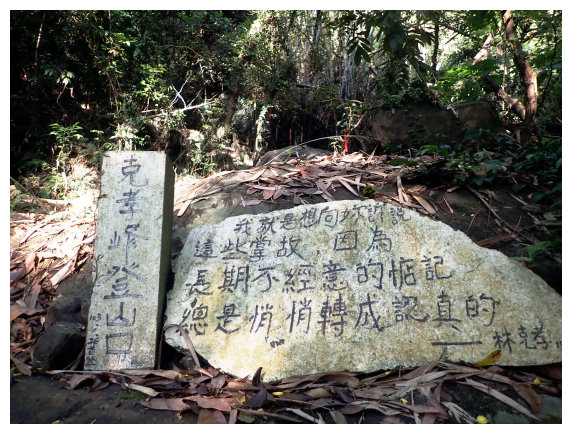 克孝峰登山口
我就是想向妳訴說
這些掌故,因為
長期不經意的惦記
總是悄悄轉成認真的
林克孝